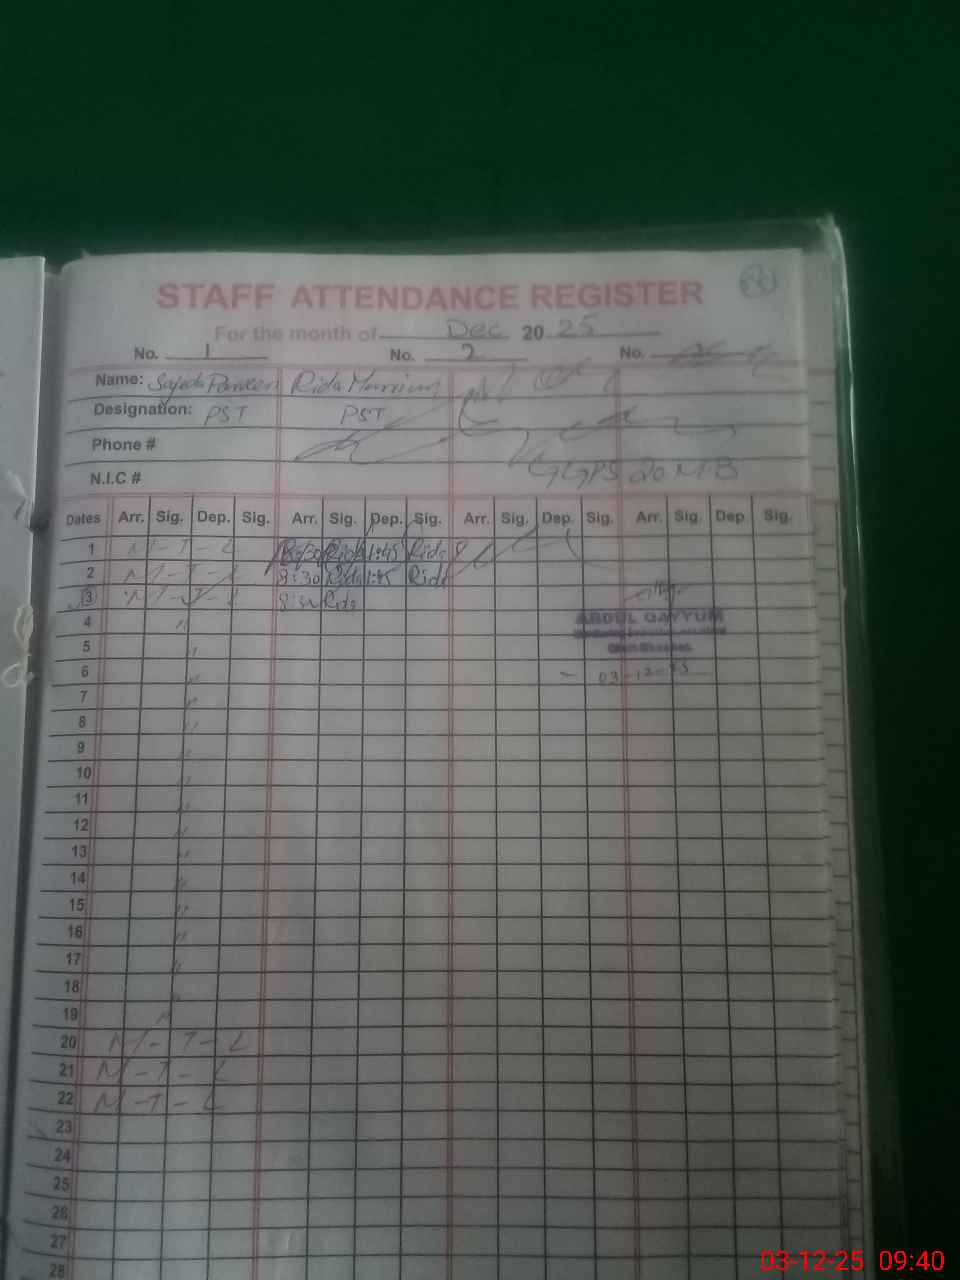 STAFF ATTENDANCE REGISTER
For the month of Dec 2025
No. 1 No. 2 No.
Name: Sajida Parveen Rida Murrium
Designation: PST PST
Phone #
N.I.C #
GGPS 20 MB
Dates Arr. Sig. Dep. Sig. Arr. Sig. Dep. Sig. Arr. Sig. Dep. Sig. Arr. Sig. Dep. Sig.
1 M-T-L 8:30 Rida 1:45 Rida
2 M-T-L 8:30 Rida 1:45 Rida
3 M-T-L 8:30 Rida
ABDUL QAYYUM
4 "
5 "
6 " 03-12-25
7 "
8 "
9 "
10 "
11 "
12 "
13 "
14 "
15 "
16 "
17 "
18 "
19 "
20 M-T-L
21 M-T-L
22 M-T-L
23
24
25
26
27
28
03-12-25 09:40